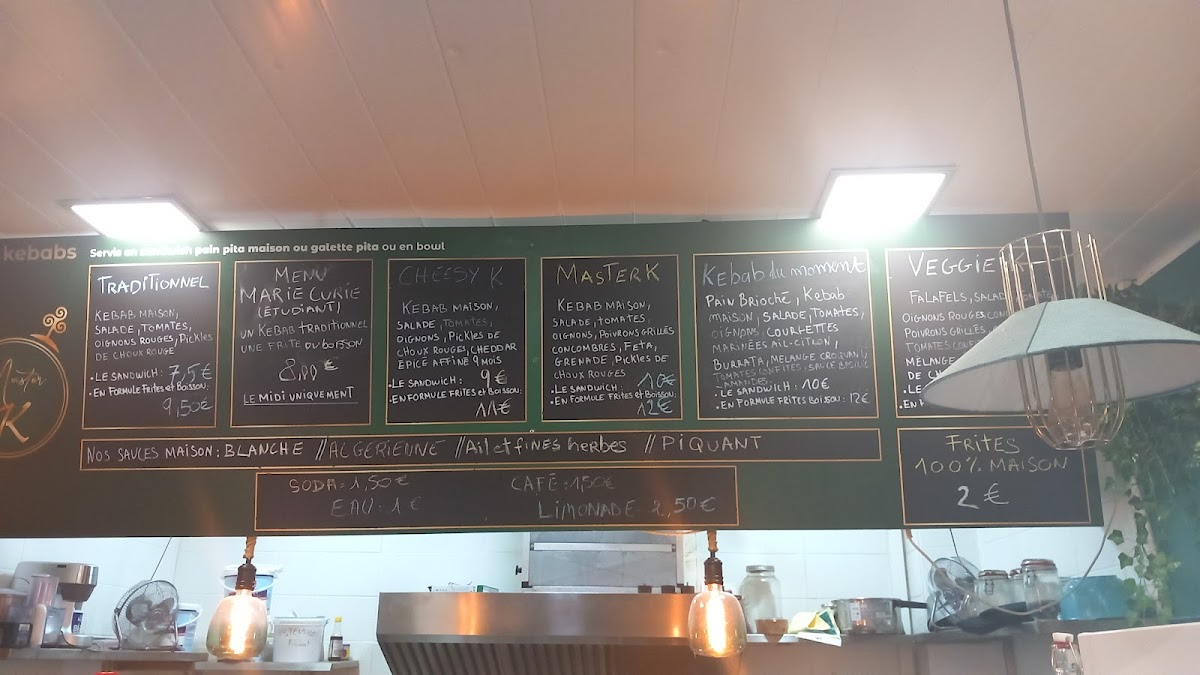 kebabs
Servis en sandwich pain pita maison ou galette pita ou en bowl
Master
K
TRADITIONNEL
KEBAB MAISON,
SALADE, TOMATES,
OIGNONS ROUGES, PICKLES
DE CHOUX ROUGE
• LE SANDWICH: 7,5€
• EN FORMULE FRITES et BOISSON:
9,50€
MENU
MARIE CURIE
(ÉTUDIANT)
UN KEBAB TRADITIONNEL
UNE FRITE OU BOISSON
8,00 €
LE MIDI UNIQUEMENT
CHEESY K
KEBAB MAISON,
SALADE, TOMATES,
OIGNONS, PICKLES DE
CHOUX ROUGES, CHEDDAR
EPICÉ AFFINÉ 9 MOIS
• LE SANDWICH: 9€
EN FORMULE FRITES et BOISSON:
11€
MASTER K
KEBAB MAISON,
SALADE, TOMATES,
OIGNONS, POIVRONS GRILLÉS
CONCOMBRES, FETA,
GRENADE, PICKLES DE
CHOUX ROUGES
• LE SANDWICH: 10€
• EN FORMULE FRITES et BOISSON:
12€
Kebab du moment
PAIN BRIOCHÉ, KEBAB
MAISON, SALADE, TOMATES,
OIGNONS, COURGETTES
MARINÉES AIL-CITRON,
BURRATA, MELANGE CROQUANT,
TOMATES CONFITES, SAUCE BASILIC
AMANDES
• LE SANDWICH: 10€
• EN FORMULE FRITES BOISSON: 12€
VEGGIE
FALAFELS, SALADE, TOMATES
OIGNONS ROUGES
POIVRONS GRILLÉS,
TOMATES CONFITES
MELANGE
DE
• LE
• EN
NOS SAUCES MAISON: BLANCHE // ALGÉRIENNE // Ail et fines herbes // PIQUANT
SODA = 1,50€ CAFÉ = 1,50€
EAU: 1 € LIMONADE: 2,50€
FRITES
100% MAISON
2 €